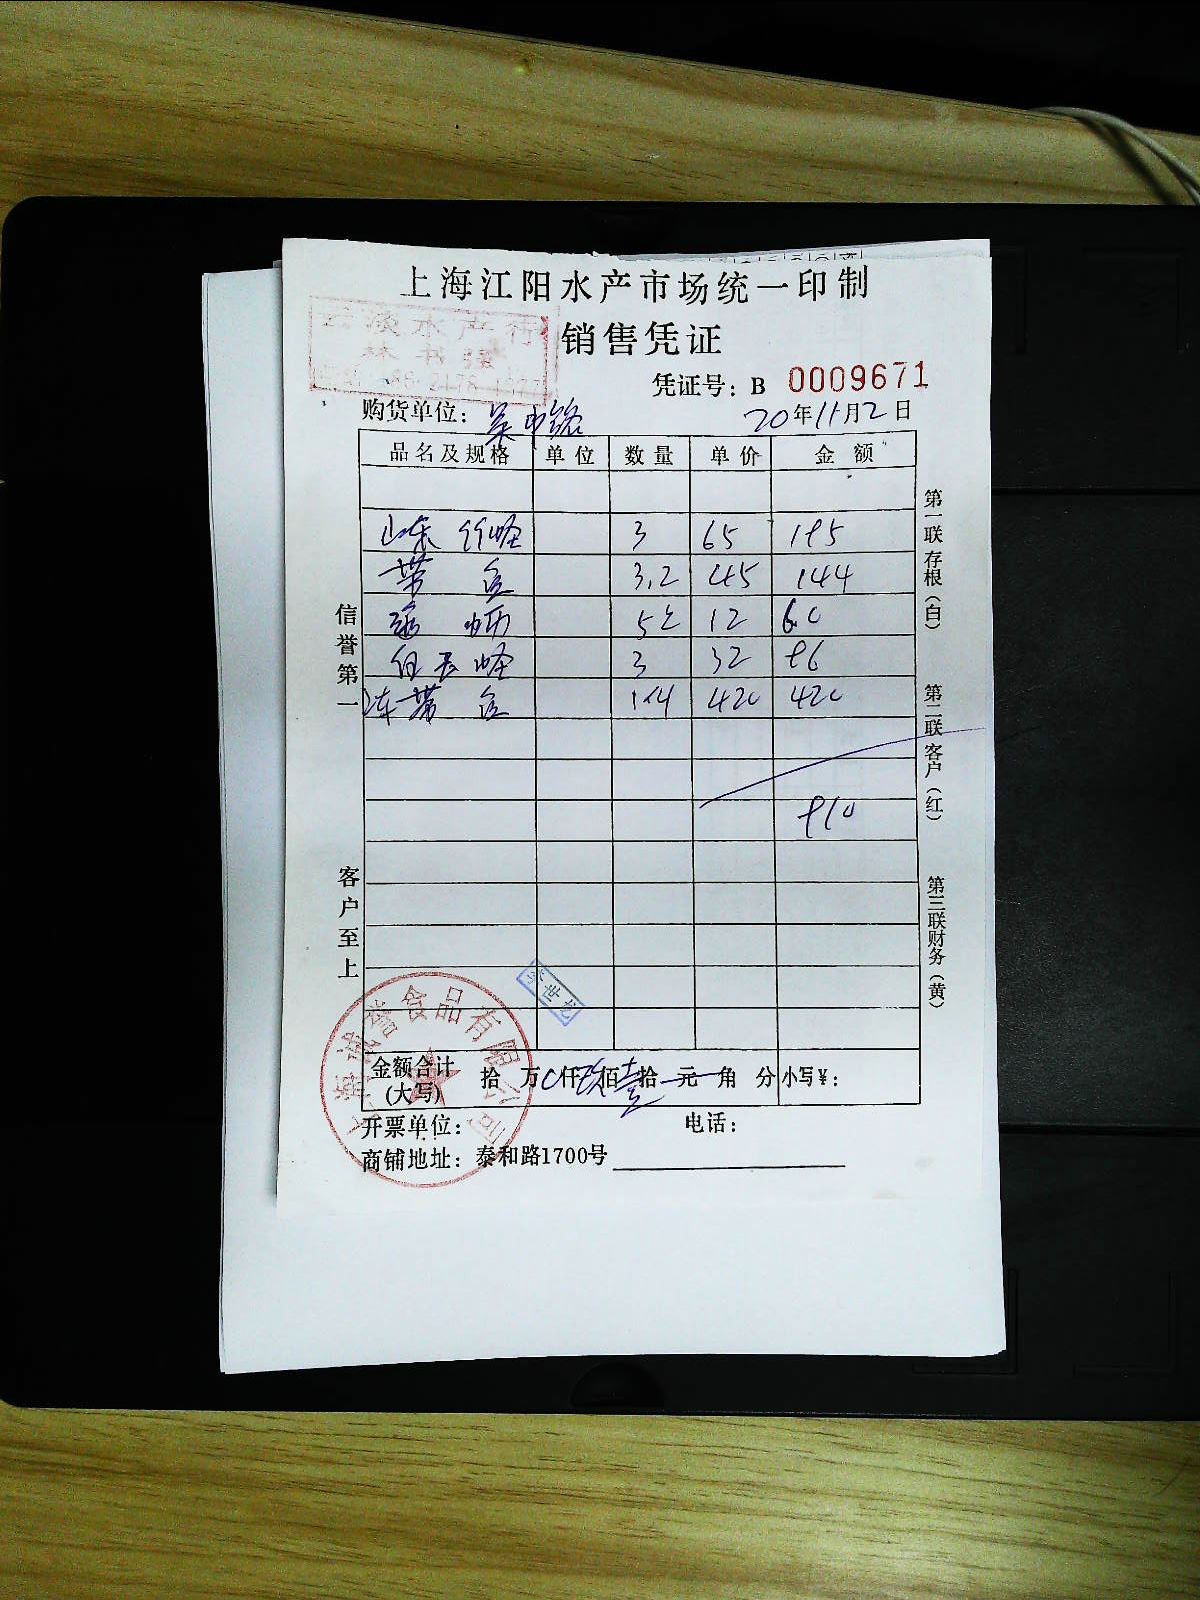 上海江阳水产市场统一印制
水产行
林书强
销售凭证
凭证号：B 0009671
购货单位：吴中路
20年11月2日
品名及规格 单位 数量 单价 金额
山东 竹蛏 3 65 195
带鱼 3.2 45 144
5斤 12 60
白玉蛏 3 32 96
冻带鱼 1×4 420 420
910
信誉第一
客户至上
第一联存根（白）
第二联客户（红）
第三联财务（黄）
李世龙
上海诚瑞食品有限公司
金额合计(大写) 拾 万 仟 玖佰 壹拾 元 角 分 小写¥：
开票单位： 电话：
商铺地址：泰和路1700号